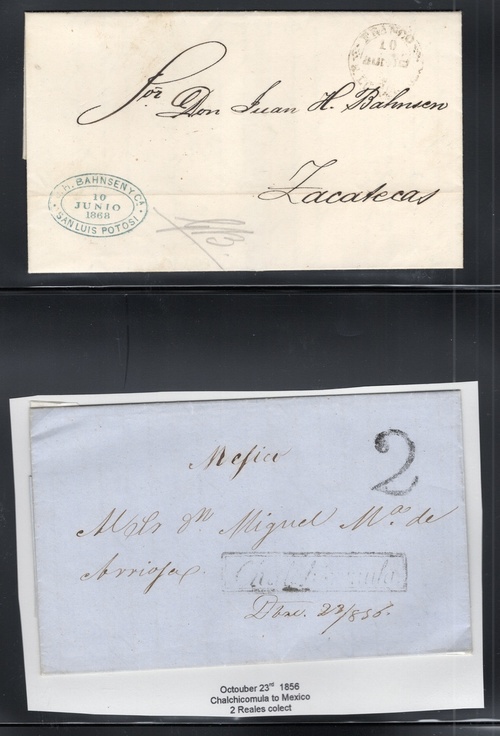 FRANCO
10
JUNIO
Sor. Don Juan H. Bahnsen
Zacatecas
J.H. BAHNSEN Y CA.
10
JUNIO
1868
SAN LUIS POTOSI.
Mejico
2
Al Sr Dn Miguel Ma. de
Arrioja.
Chalchicomula
23/856.
Octouber 23rd 1856
Chalchicomula to Mexico
2 Reales colect